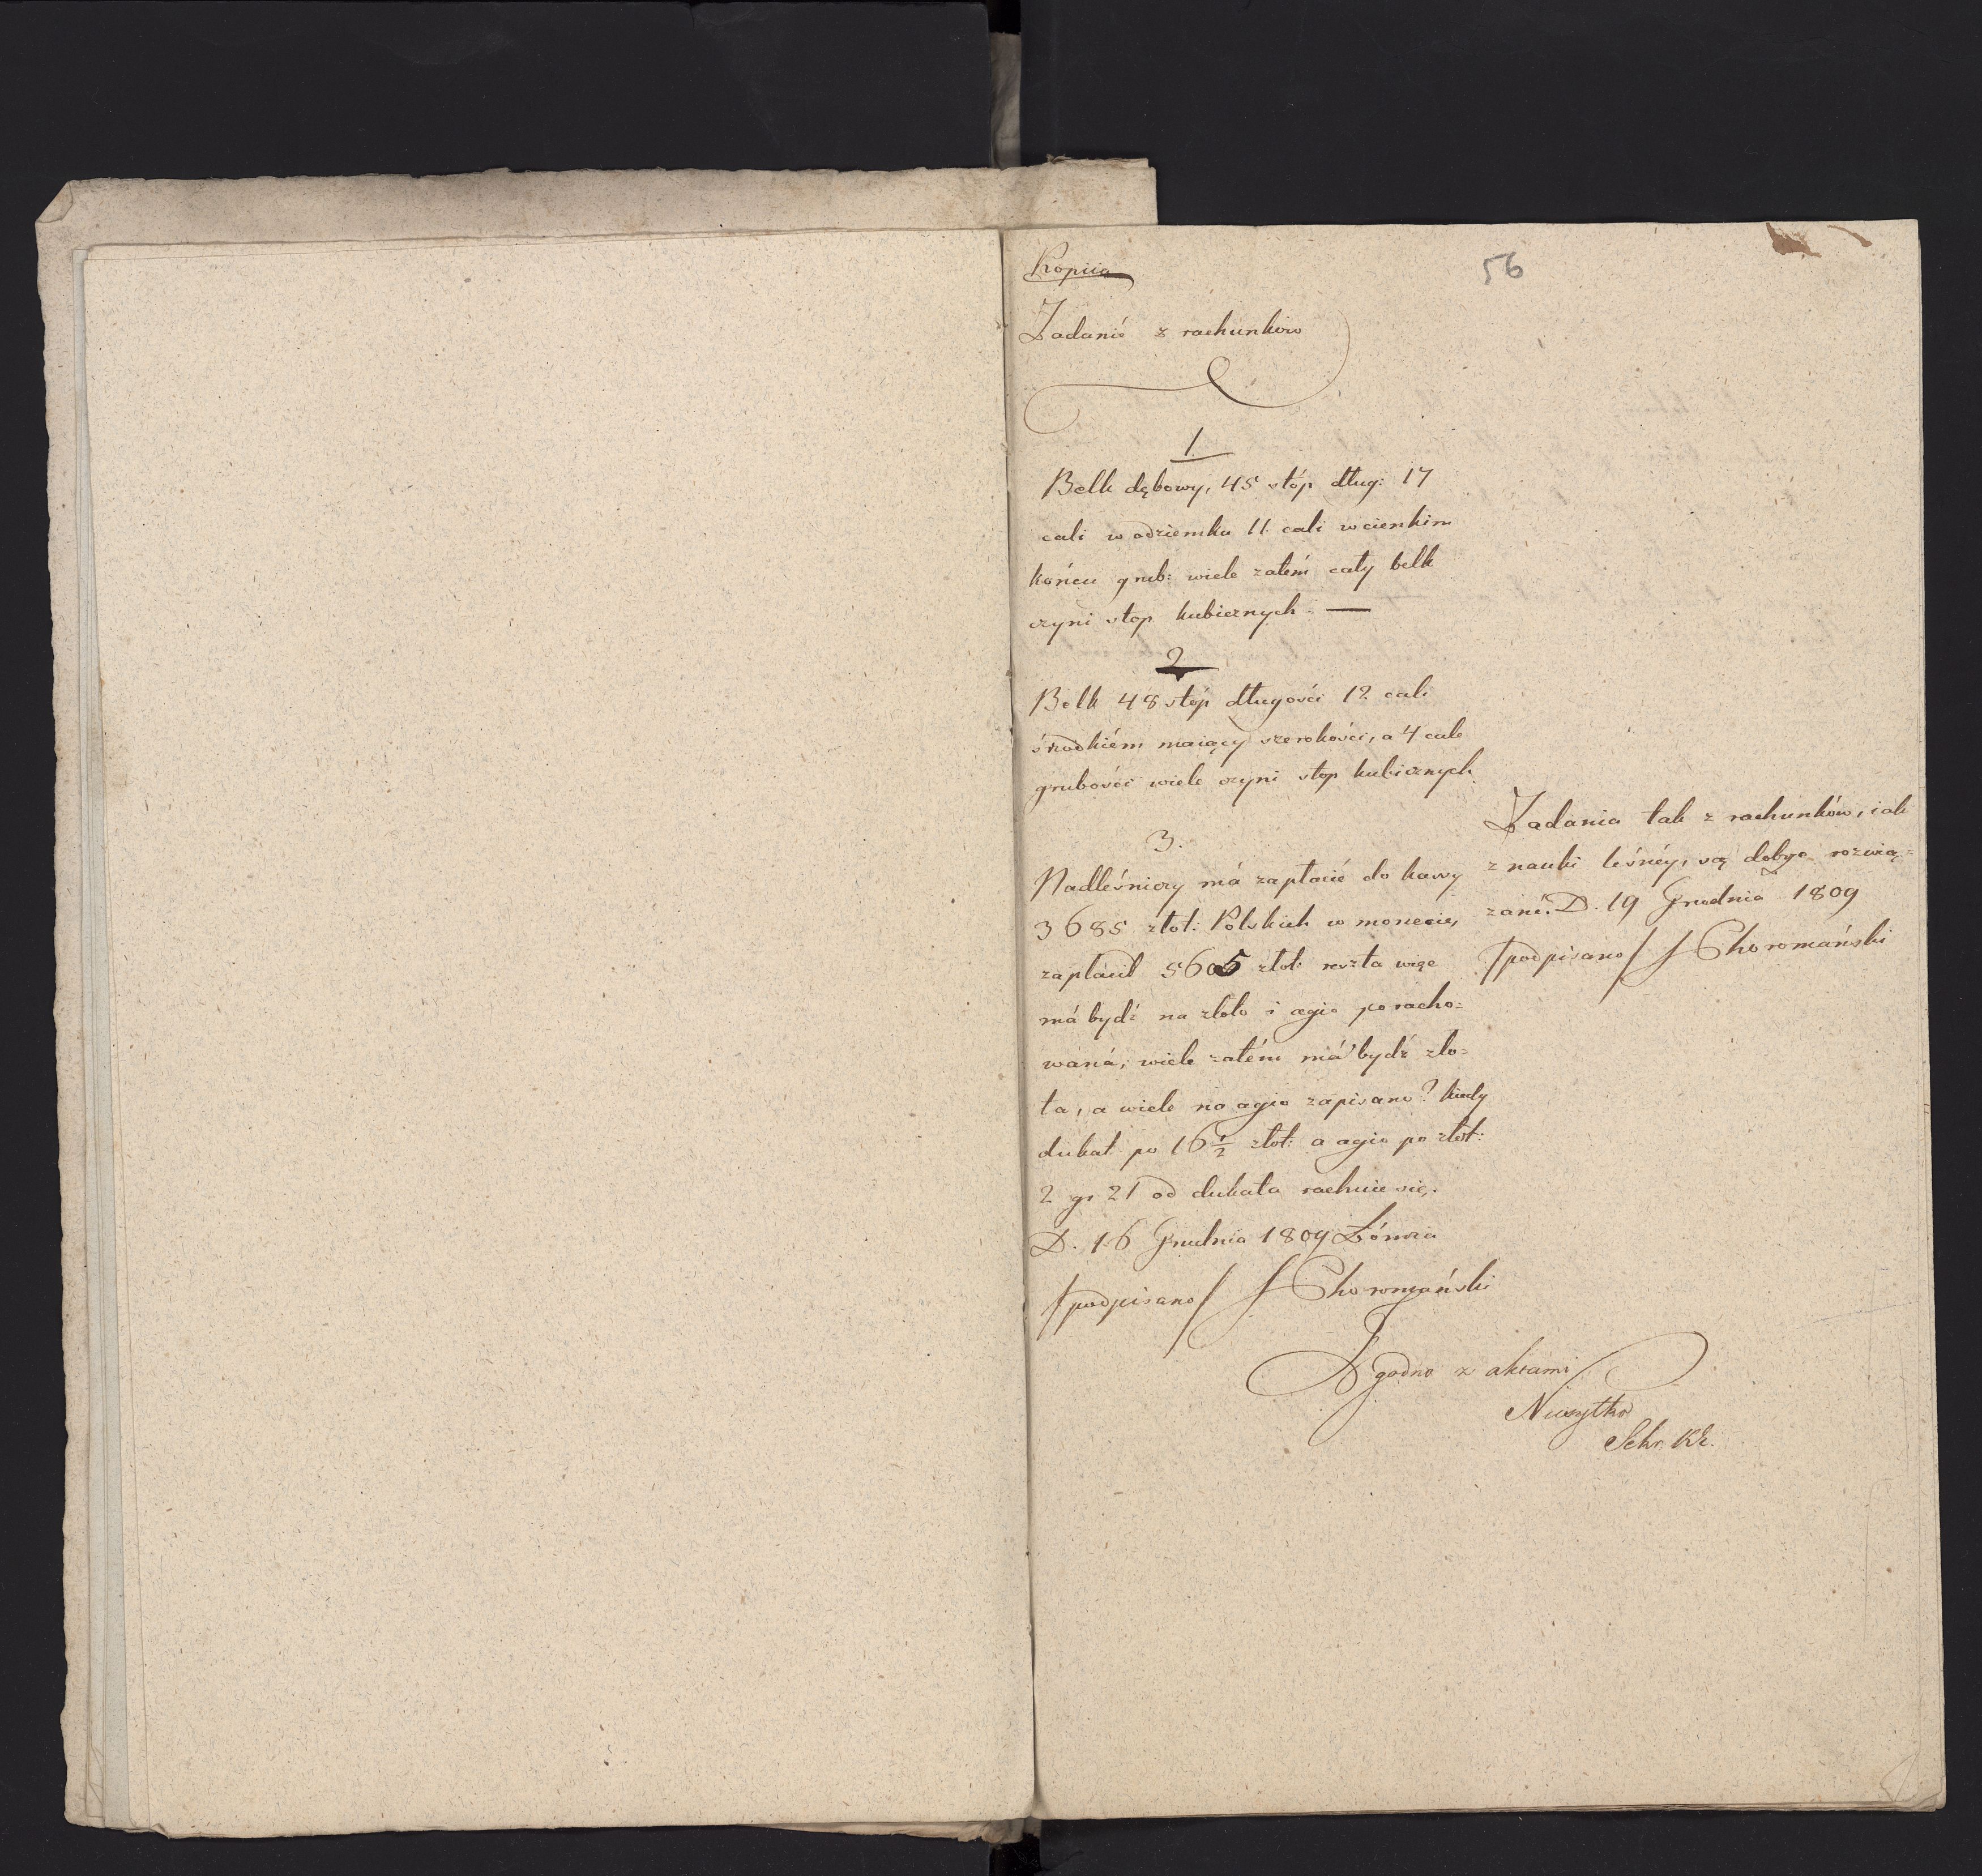 Kopiia
56
Zadanié z rachunków
1.
Belk dębowy, 45 stóp dług: 17
cali w odziemku 11. cali w cienkim
końcu grub: wiele zatém cały belk
czyni stop kubicznych. —
2
Belk 48 stóp długości 12 cali
środkiém maiący szerokości, a 4 cale
grubości wiele czyni stop kubicznych
3.
Nadleśniczy má zapłacić do kassy
3685 złot: Polskich w monecie,
zapłacił 5605 złot: reszta więc
má bydź na złoto i agio poracho=
waná, wiele zatém má bydź zło=
ta, a wiele na agio zapisano? kiedy
dukat po 16 1/2 złot: a agio po złot:
2 gr 21 od dukata rachuie się.
D. 16 Grudnia 1809 Łómża
/podpisano/ J Choromański
Zadania tak z rachunków, iak
z nauki leśnéy, są dobrze rozwią=
zané. D. 19 Grudnia 1809
/podpisano/ J Choromański
Zgodno z aktami
Sekr.